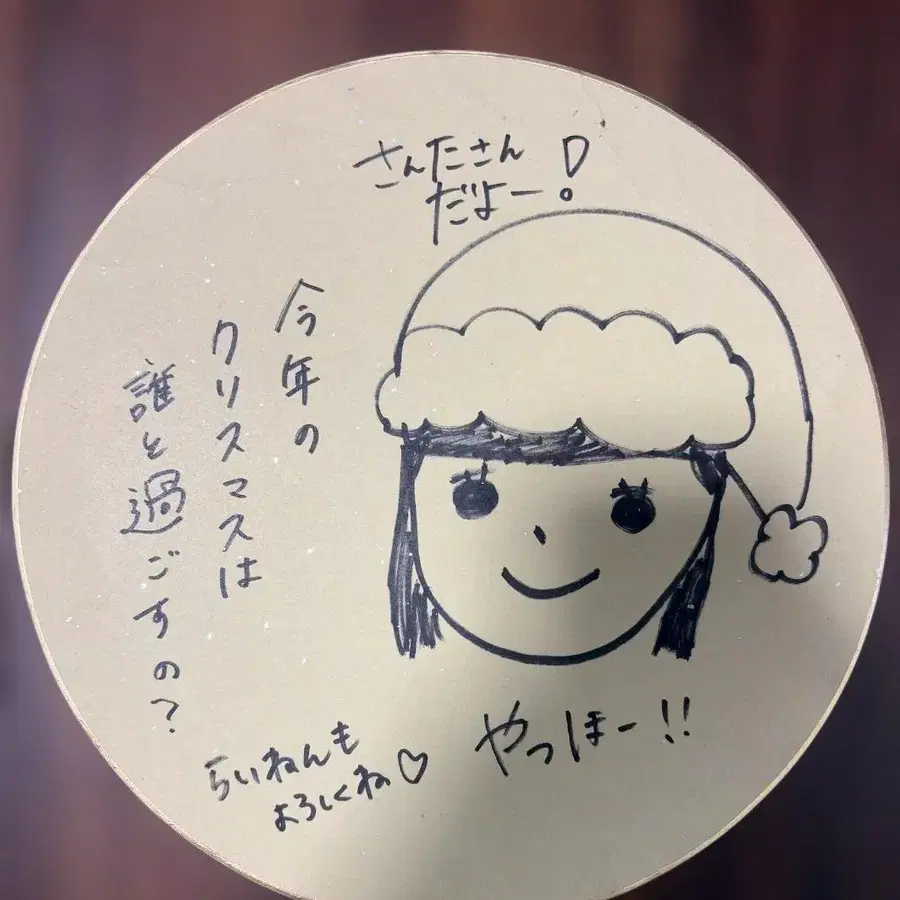 さんたさん
だよー!
今年の
クリスマスは
誰と過ごすの?
やっほー!!
らいねんも
よろしくね♡